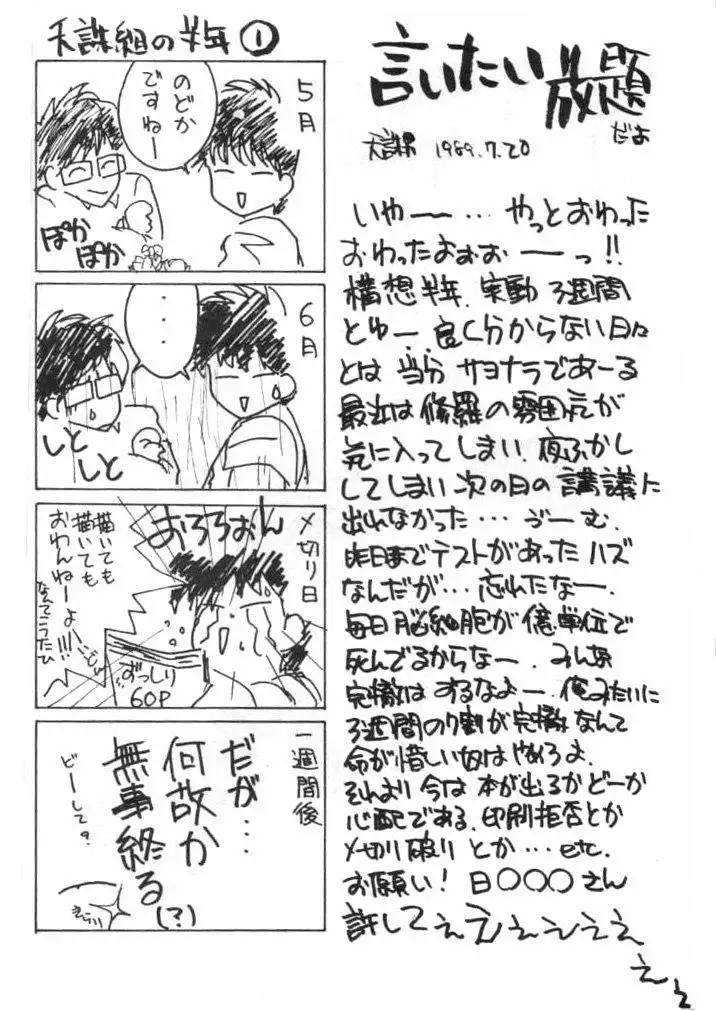 天誅組の半年①
5月
のどか
ですねー
ぽか
ぽか
6月
・・・
しと
しと
〆切り日
おろろぉん
描いても
描いても
おわんねーよぉ
!!!
ずっしり
60P
一週間後
だが…
何故か
無事終る
(?)
どーして?
言いたい放題
だよ
天誅組 1989.7.20
いやー… やっとおわった
おわったよぉぉーっ!!
構想半年、実動3週間
とゆー、良く分からない日々
とは 当分 サヨナラであーる
最近は修羅の雰囲気が
気に入ってしまい、夜ふかし
してしまい次の日の講議に
出れなかった… うーむ、
昨日までテストがあったハズ
なんだが… 忘れたなー、
毎日脳細胞が億単位で
死んでるからなー、みんな
完徹はするなよー、俺みたいに
3週間の9割が完徹なんて
命が惜しい奴はやめろよ、
それより今は本が出るかどーか
心配である、印刷拒否とか
〆切り破りとか…etc.
お願い!日○○○さん
許してぇえぇぇぇぇ
ぇぇ